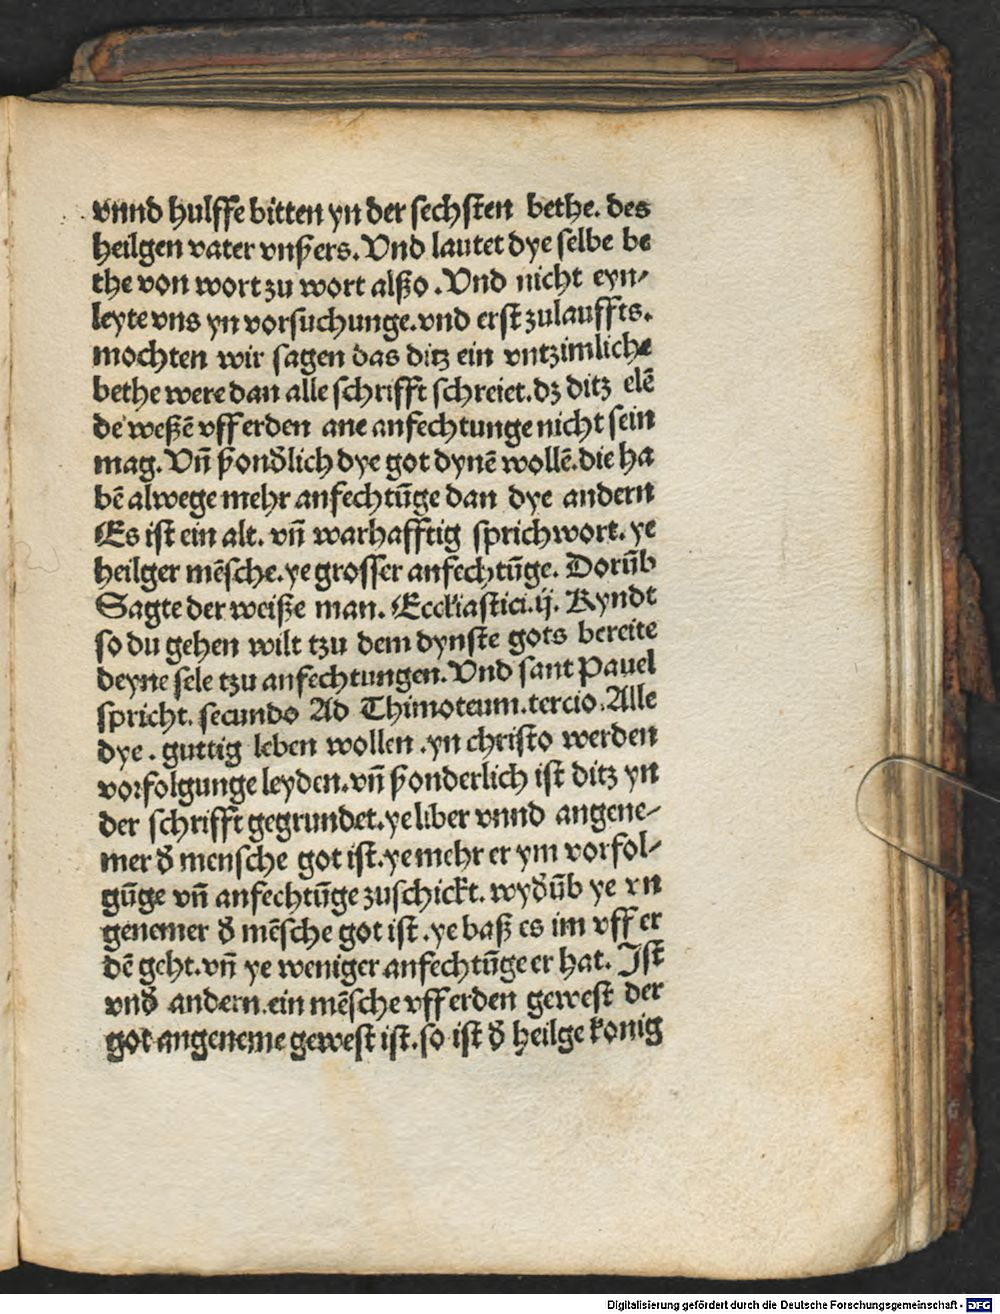 vnnd hulffe bitten yn der sechsten bethe. des
heilgen vater vnßers. Vnd lautet dye selbe be
the von wort zu wort alßo. Vnd nicht eyn-
leyte vns yn vorsuchunge. vnd erst zulauffts.
mochten wir sagen das ditz ein vntzimliche
bethe were dan alle schrifft schreiet. dz ditz elē
de weßē vff erden ane anfechtunge nicht sein
mag. Vn̄ ßond̄lich dye got dynē wollē. die ha
bē alwege mehr anfechtūge dan dye andern
Es ist ein alt. vn̄ warhafftig sprichwort. ye
heilger mēsche. ye grosser anfechtūge. Dorūb
Sagte der weiße man. Ecclīastici. ij. Kyndt
so du gehen wilt tzu dem dynste gots bereite
deyne sele tzu anfechtungen. Vnd sant Pauel
spricht. secundo Ad Thimoteum. tercio. Alle
dye. guttig leben wollen. yn christo werden
vorfolgunge leyden. vn̄ ßonderlich ist ditz yn
der schrifft gegrundet. ye liber vnnd angene-
mer d̄ mensche got ist. ye mehr er ym vorfol-
gūge vn̄ anfechtūge zuschickt. wyd̄ūb ye vn
genemer d̄ mēsche got ist. ye baß es im vff er
dē geht. vn̄ ye weniger anfechtūge er hat. Ist
vnd̄ andern. ein mēsche vff erden gewest der
got angeneme gewest ist. so ist d̄ heilge konig
Digitalisierung gefördert durch die Deutsche Forschungsgemeinschaft - DFG